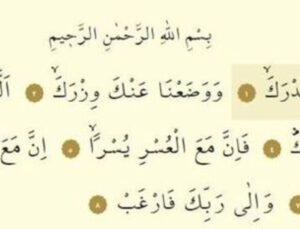 بِسْمِ اللهِ الرَّحْمٰنِ الرَّحٖيمِ
دْرَكَۙ ﴿١﴾ وَوَضَعْنَا عَنْكَ وِزْرَكَۙ ﴿٢﴾ اَلَّ
كَۜ ﴿٤﴾ فَاِنَّ مَعَ الْعُسْرِ يُسْراًۙ ﴿٥﴾ اِنَّ مَعَ
﴿٧﴾ وَاِلٰى رَبِّكَ فَارْغَبْ ﴿٨﴾